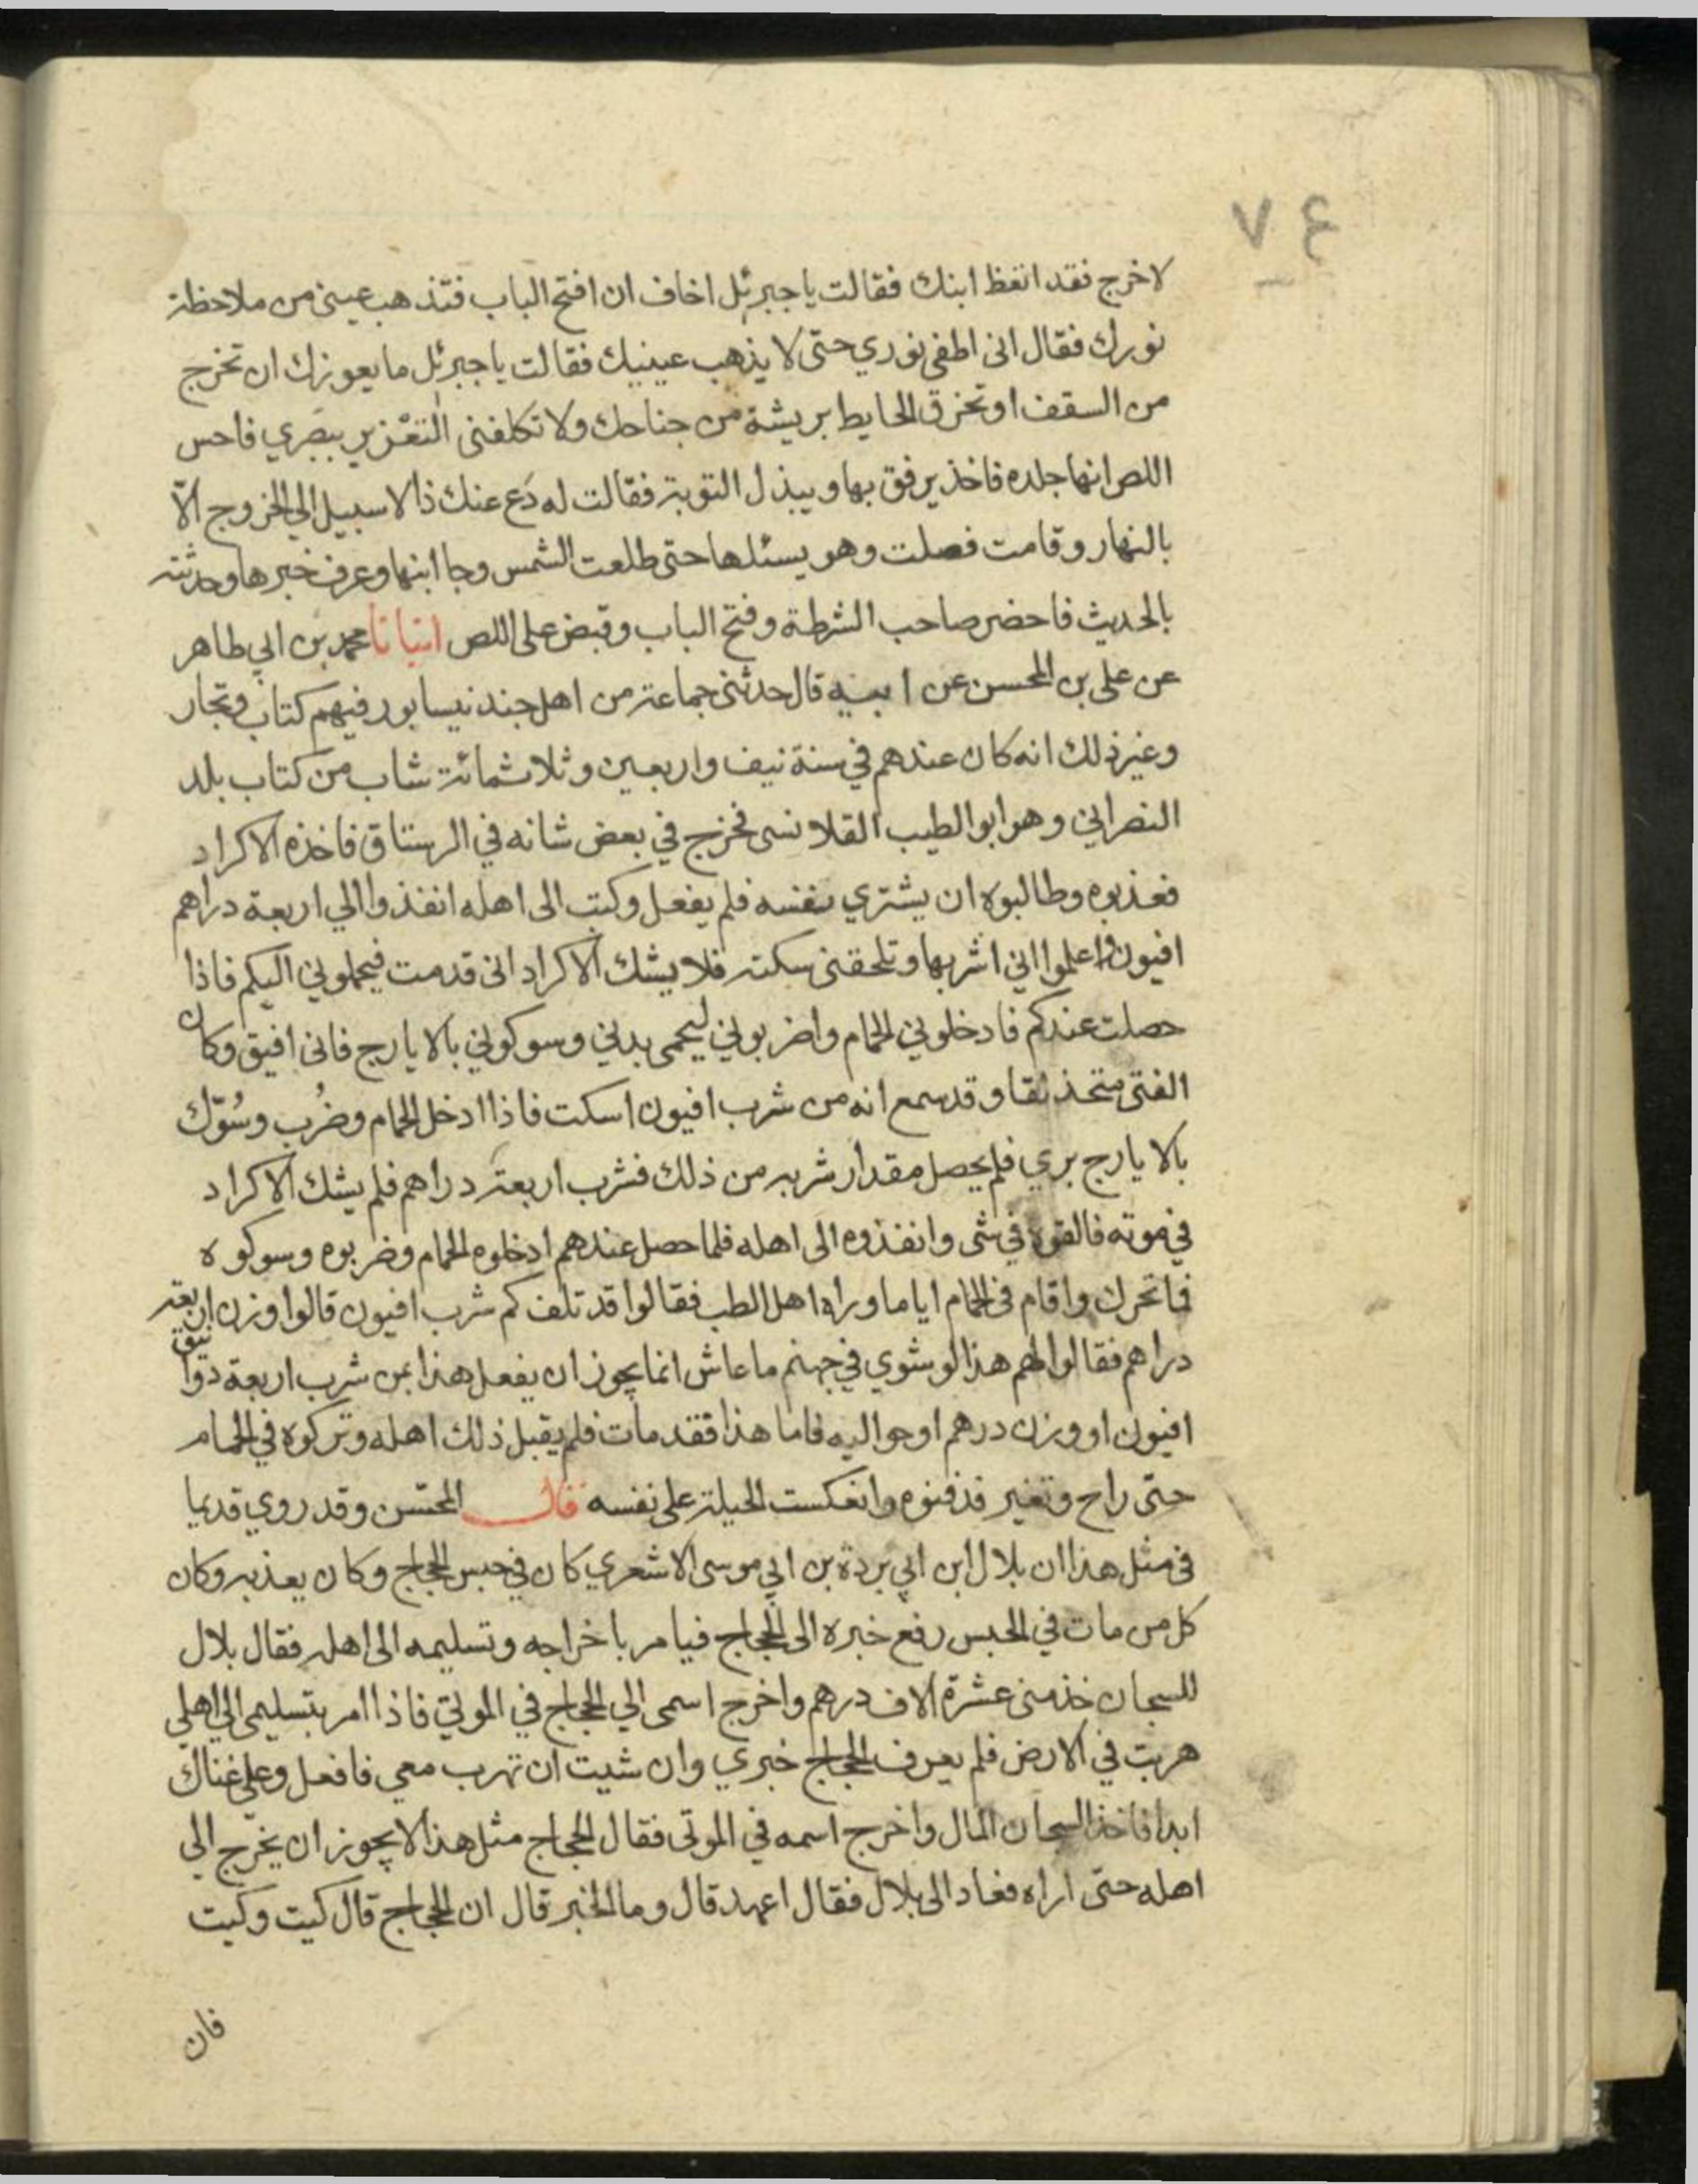 ٧٤
لاخرج فقد اتعظ ابنك فقالت يا جبرئل اخاف ان افتح الباب فتذهب عينى من ملاحظة
نورك فقال انى اطفى نوري حتى لا يذهب عينيك فقالت يا جبرئل ما يعوزك ان تخرج
من السقف او تخرق الحايط بريشة من جناحك ولا تكلفنى التعزير ببصري فاحس
اللص انها جلده فاخذ يرفق بها ويبذل التوبة فقالت له دع عنك ذا لا سبيل الي الخروج الّا
بالنهار وقامت فصلت وهو يسئلها حتى طلعت الشمس وجا ابنها وعرف خبرها وحدثته
بالحديث فاحضر صاحب الشرطة وفتح الباب وقبض على اللص انبانا محمد بن ابي طاهر
عن على بن المحسن عن ابيه قال حدثنى جماعة من اهل جند نيسابور فيهم كتاب وتجار
وغير ذلك انه كان عندهم في سنة نيف واربعين وثلاثمائة شاب من كتاب بلد
النصراني وهو ابو الطيب القلانسى فخرج في بعض شانه في الرستاق فاخذه الاكراد
فعذبوه وطالبوه ان يشتري نفسه فلم يفعل وكتب الى اهله انفذوا الي اربعة دراهم
افيون واعلموا اني اشربها وتلحقنى سكتة فلا يشك الاكراد انى قدمت فيحملوني اليكم فاذا
حصلت عندكم فادخلوني الحمام واضربوني ليحمى بدني وسوكوني بالايارج فانى افيق وكان
الفتى متخذ لقا وقد سمع انه من شرب افيون اسكت فاذا ادخل الحمام وضُرب وسُوّك
بالايارج بري فلم يحصل مقدار شربه من ذلك فشرب اربعة دراهم فلم يشك الاكراد
في موته فالقوه في شى وانفذوه الى اهله فلما حصل عندهم ادخلوه الحمام وضربوه وسوكوه
فما تحرك واقام فى الحمام اياما وراه اهل الطب فقالوا قد تلف كم شرب افيون قالوا وزن اربعة
دراهم فقالوا لهم هذا لو شوي في جهنم ما عاش انما يجوز ان يفعل هذا بمن شرب اربعة دوانيق
افيون او وزن درهم او حواليه فاما هذا فقد مات فلم يقبل ذلك اهله وتركوه في الحمام
حتى راح وتغير فدفنوه وانعكست الحيلة على نفسه قال المحسّن وقد روي قديما
فى مثل هذا ان بلال ابن ابي بردة بن ابي موسى الاشعري كان في حبس الحجاج وكان يعذبه وكان
كل من مات في الحبس رفع خبره الى الحجاج فيامر باخراجه وتسليمه الى اهله فقال بلال
للسجان خذ منى عشرة الاف درهم واخرج اسمى الي الحجاج في الموتي فاذا امر بتسليمى الي اهلي
هربت في الارض فلم يعرف الحجاج خبري وان شيت ان تهرب معي فافعل وعلي غناك
ابدا فاخذ السجان المال واخرج اسمه في الموتى فقال الحجاج مثل هذا لا يجوز ان يخرج الي
اهله حتى اراه فعاد الى بلال فقال اعهد قال وما الخبر قال ان الحجاج قال كيت وكيت
فان